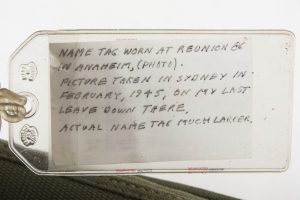 NAME TAG WORN AT REUNION 86
IN ANAHEIM, (PHOTO).
PICTURE TAKEN IN SYDNEY IN
FEBRUARY, 1945, ON MY LAST
LEAVE DOWN THERE.
ACTUAL NAME TAG MUCH LARGER.